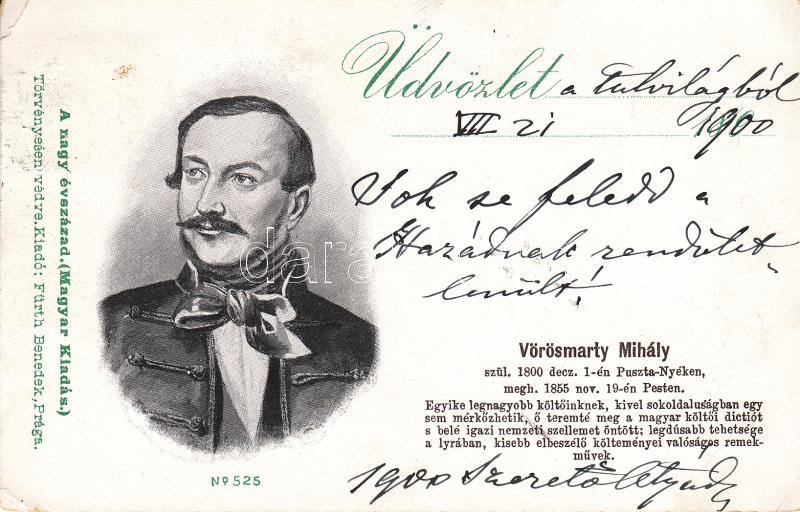 Üdvözlet a tulvilágból
VII 21 1900
Soh se feledd a
Hazádnak rendület-
lenült!
Vörösmarty Mihály
szül. 1800 decz. 1-én Puszta-Nyéken,
megh. 1855 nov. 19-én Pesten.
Egyike legnagyobb költőinknek, kivel sokoldaluságban egy
sem mérkőzhetik, ő teremté meg a magyar költői dictiót
s belé igazi nemzeti szellemet öntött; legdúsabb tehetsége
a lyrában, kisebb elbeszélő költeményei valóságos remek-
művek.
1900 Szerető Atyád
A nagy évszázad. (Magyar Kiadás.)
Törvényesen védve. Kiadó: Fürth Benedek, Prága.
No 525